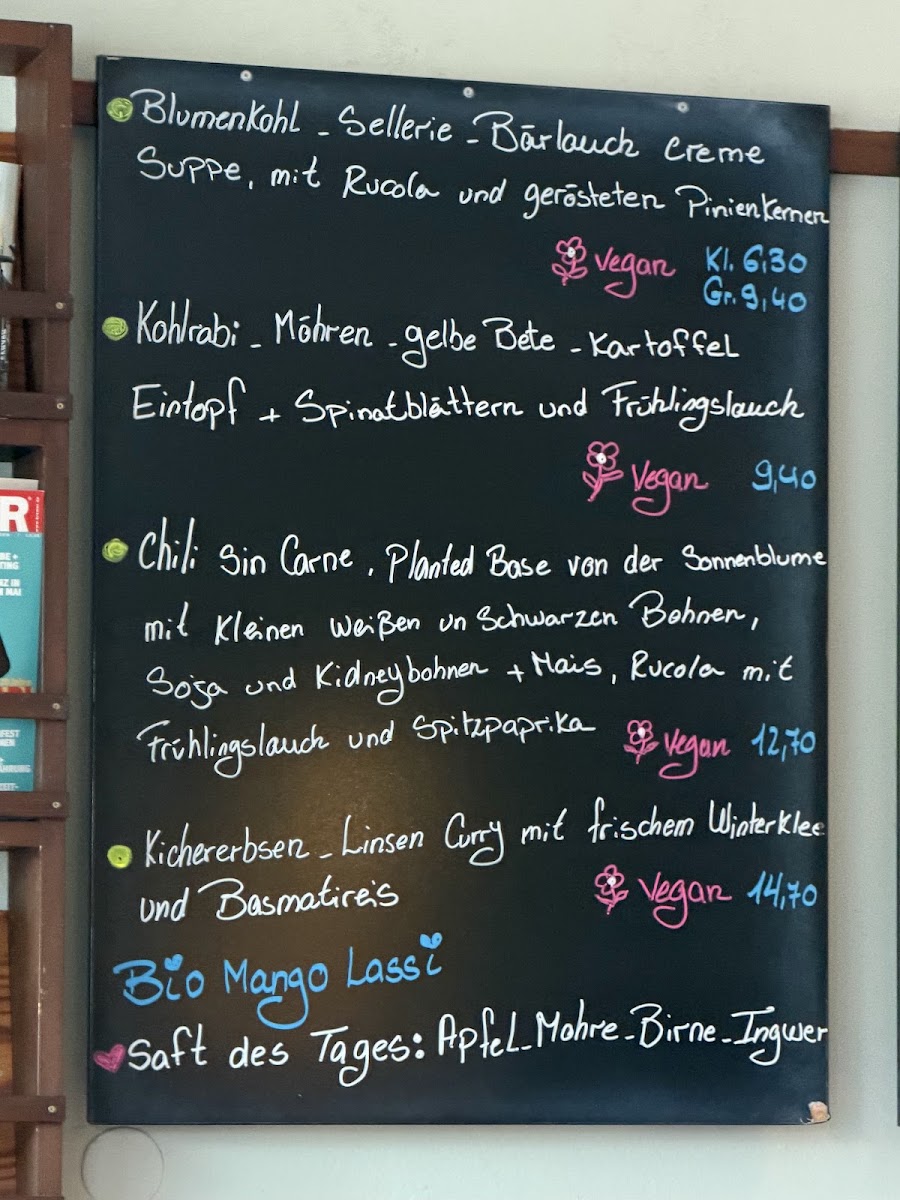 Blumenkohl - Sellerie - Bärlauch creme
Suppe, mit Rucola und gerösteten Pinienkernen
Vegan Kl. 6,30
Gr. 9,40
Kohlrabi - Möhren - gelbe Bete - Kartoffel
Eintopf + Spinatblättern und Frühlingslauch
Vegan 9,40
Chili Sin Carne, Planted Base von der Sonnenblume
mit Kleinen weißen un Schwarzen Bohnen,
Soja und Kidneybohnen + Mais, Rucola mit
Frühlingslauch und Spitzpaprika Vegan 12,70
Kichererbsen - Linsen Curry mit frischem Winterklee
und Basmatireis Vegan 14,70
Bio Mango Lassi
Saft des Tages: Apfel - Möhre - Birne - Ingwer
R